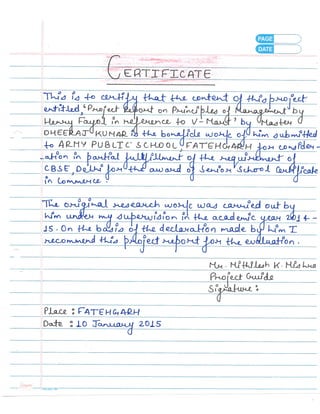 PAGE
DATE
CERTIFICATE
This is to certify that the content of this project
entitled "Project Report on Principles of Management by
Henry Fayol in reference to V-Mart" by Master
DHEERAJ KUMAR is the bonafide work of him submitted
to ARMY PUBLIC SCHOOL, FATEHGARH for consider-
-ation in partial fullfillment of the requirement of
CBSE, Delhi for the award of Senior School Certificate
in Commerce.
The original research work was carried out by
him under my supervision in the academic year 2014-
15. On the basis of the declaration made by him I
recommend this project report for the evaluation.
Mr. Mithilesh K. Mishra
Project Guide
Signature:
Place: FATEHGARH
Date: 10 January 2015